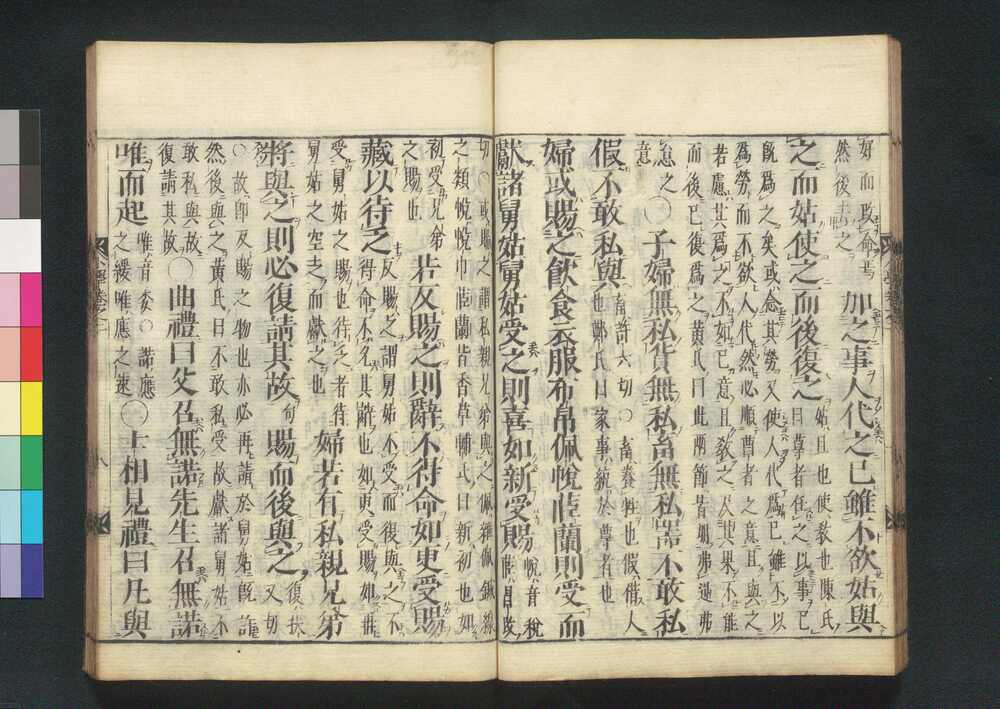 好而改命焉
然後去之
加之事人代之已雖不欲姑與
之而姑使之而後復之
姑且也使敎也陳氏
曰尊者任之以事已
旣爲之矣或念其勞又使人代爲已雖不以
爲勞而不欲人代然必順尊者之意且與之
若慮其爲之不如已意且敎之及其果不能
而後已復爲之黃氏曰此兩節皆勿逆弗
怠之意
○子婦無私貨無私畜無私器不敢私
假不敢私與
畜許六切○畜養牲也假借人
也鄭氏曰家事統於尊者也
婦或賜之飮食衣服布帛佩帨茝蘭則受而
獻諸舅姑舅姑受之則喜如新受賜
帨音稅
茝昌改
切○或賜之謂私親兄弟與之
之類帨佩巾茝蘭皆香草輔氏曰新初也如
初受兄弟
之賜也
若反賜之則辭不得命如更受賜
藏以待乏
反賜之謂舅姑不受而復與之不
得命不允其辭也如更受賜如再
受舅姑之賜也待乏者待
舅姑之空乏而獻之也
婦若有私親兄弟
將與之則必復請其故句賜而後與之
復扶
又切
○故卽反賜之物也亦必再請於舅姑旣許
然後與之黃氏曰不敢私受故獻諸舅姑不
敢私與故
復請其故
○曲禮曰父召無諾先生召無諾
唯而起
唯音委○諾應
之緩唯應之速
○士相見禮曰凡與